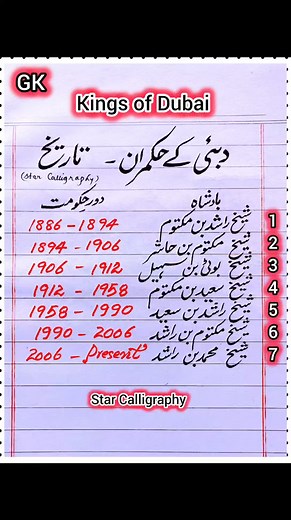 GK
Kings of Dubai
دبئی کے حکمران - تاریخ
(Star Calligraphy)
بادشاہ دورِ حکومت
1 شیخ راشد بن مکتوم 1886 - 1894
2 شیخ مکتوم بن حاشر 1894 - 1906
3 شیخ بوٹی بن سہیل 1906 - 1912
4 شیخ سعید بن مکتوم 1912 - 1958
5 شیخ راشد بن سعید 1958 - 1990
6 شیخ مکتوم بن راشد 1990 - 2006
7 شیخ محمد بن راشد 2006 - Present
Star Calligraphy